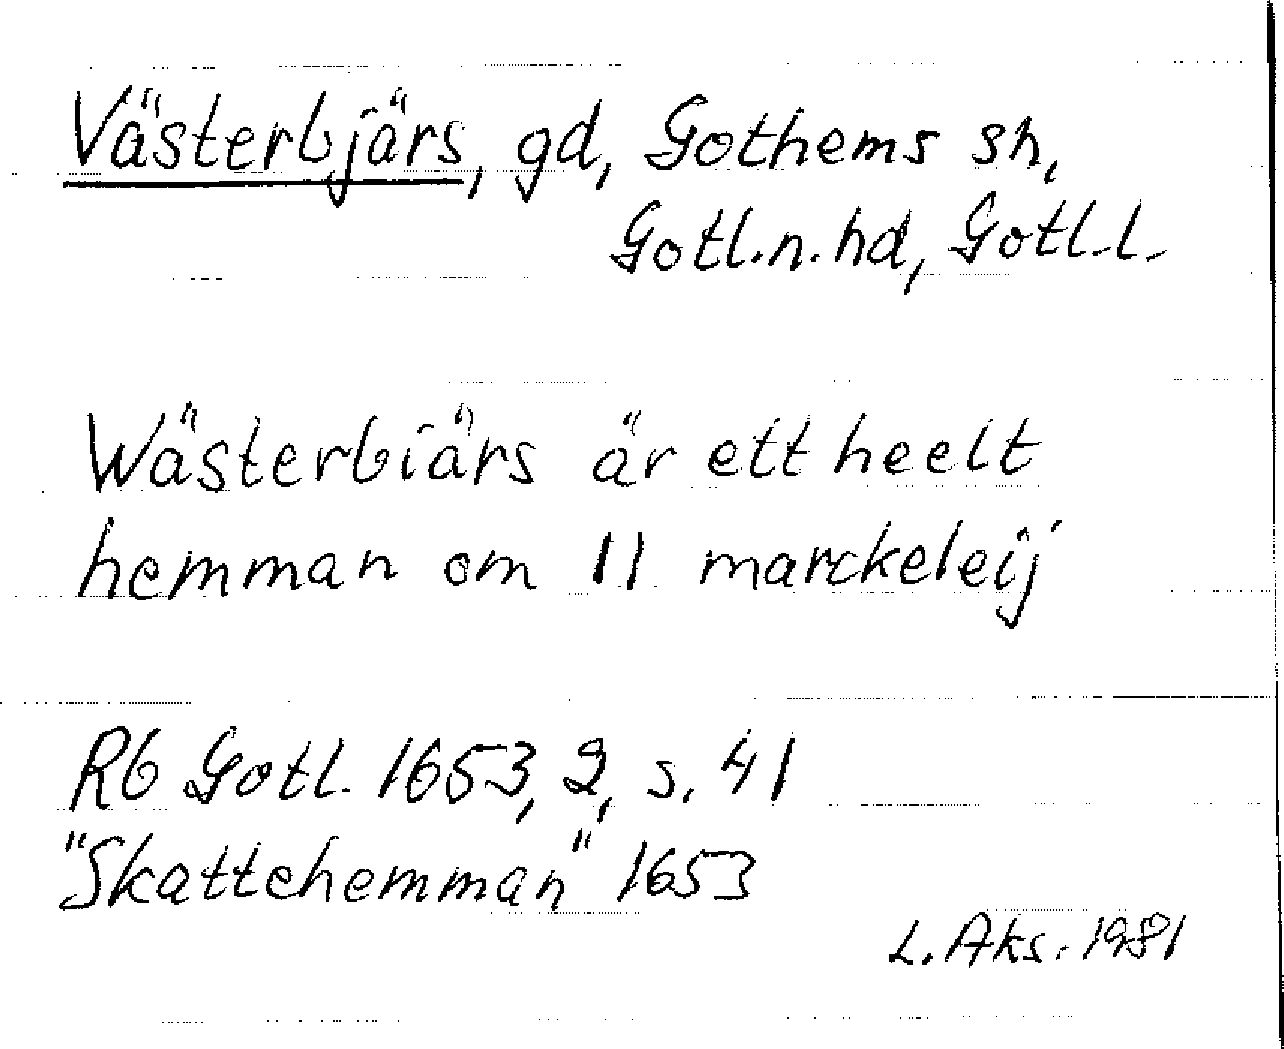 Västerbjärs, gd, Gothems sn,
Gotl.n.hd, Gotl.l.
Wästerbiärs är ett heelt
hemman om 11 marckeleij
Rb Gotl. 1653, 2, s. 41
"Skattehemman" 1653
L. Aks. 1981